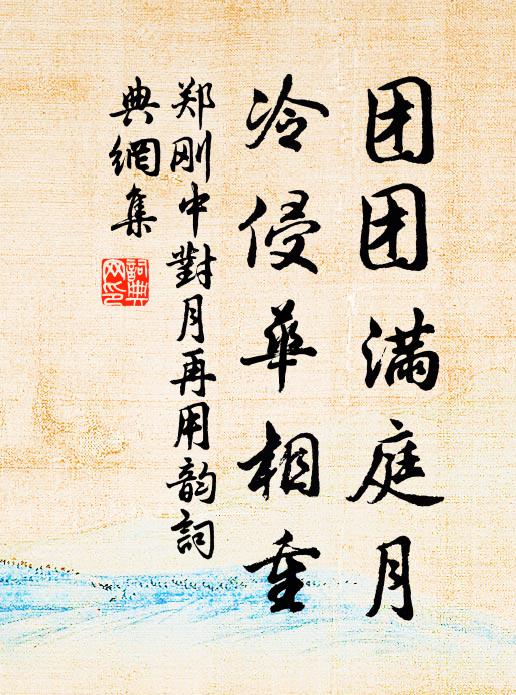 团团满庭月
冷侵华相重
郑刚中對月再用韵詞
典網集
詞典
网印